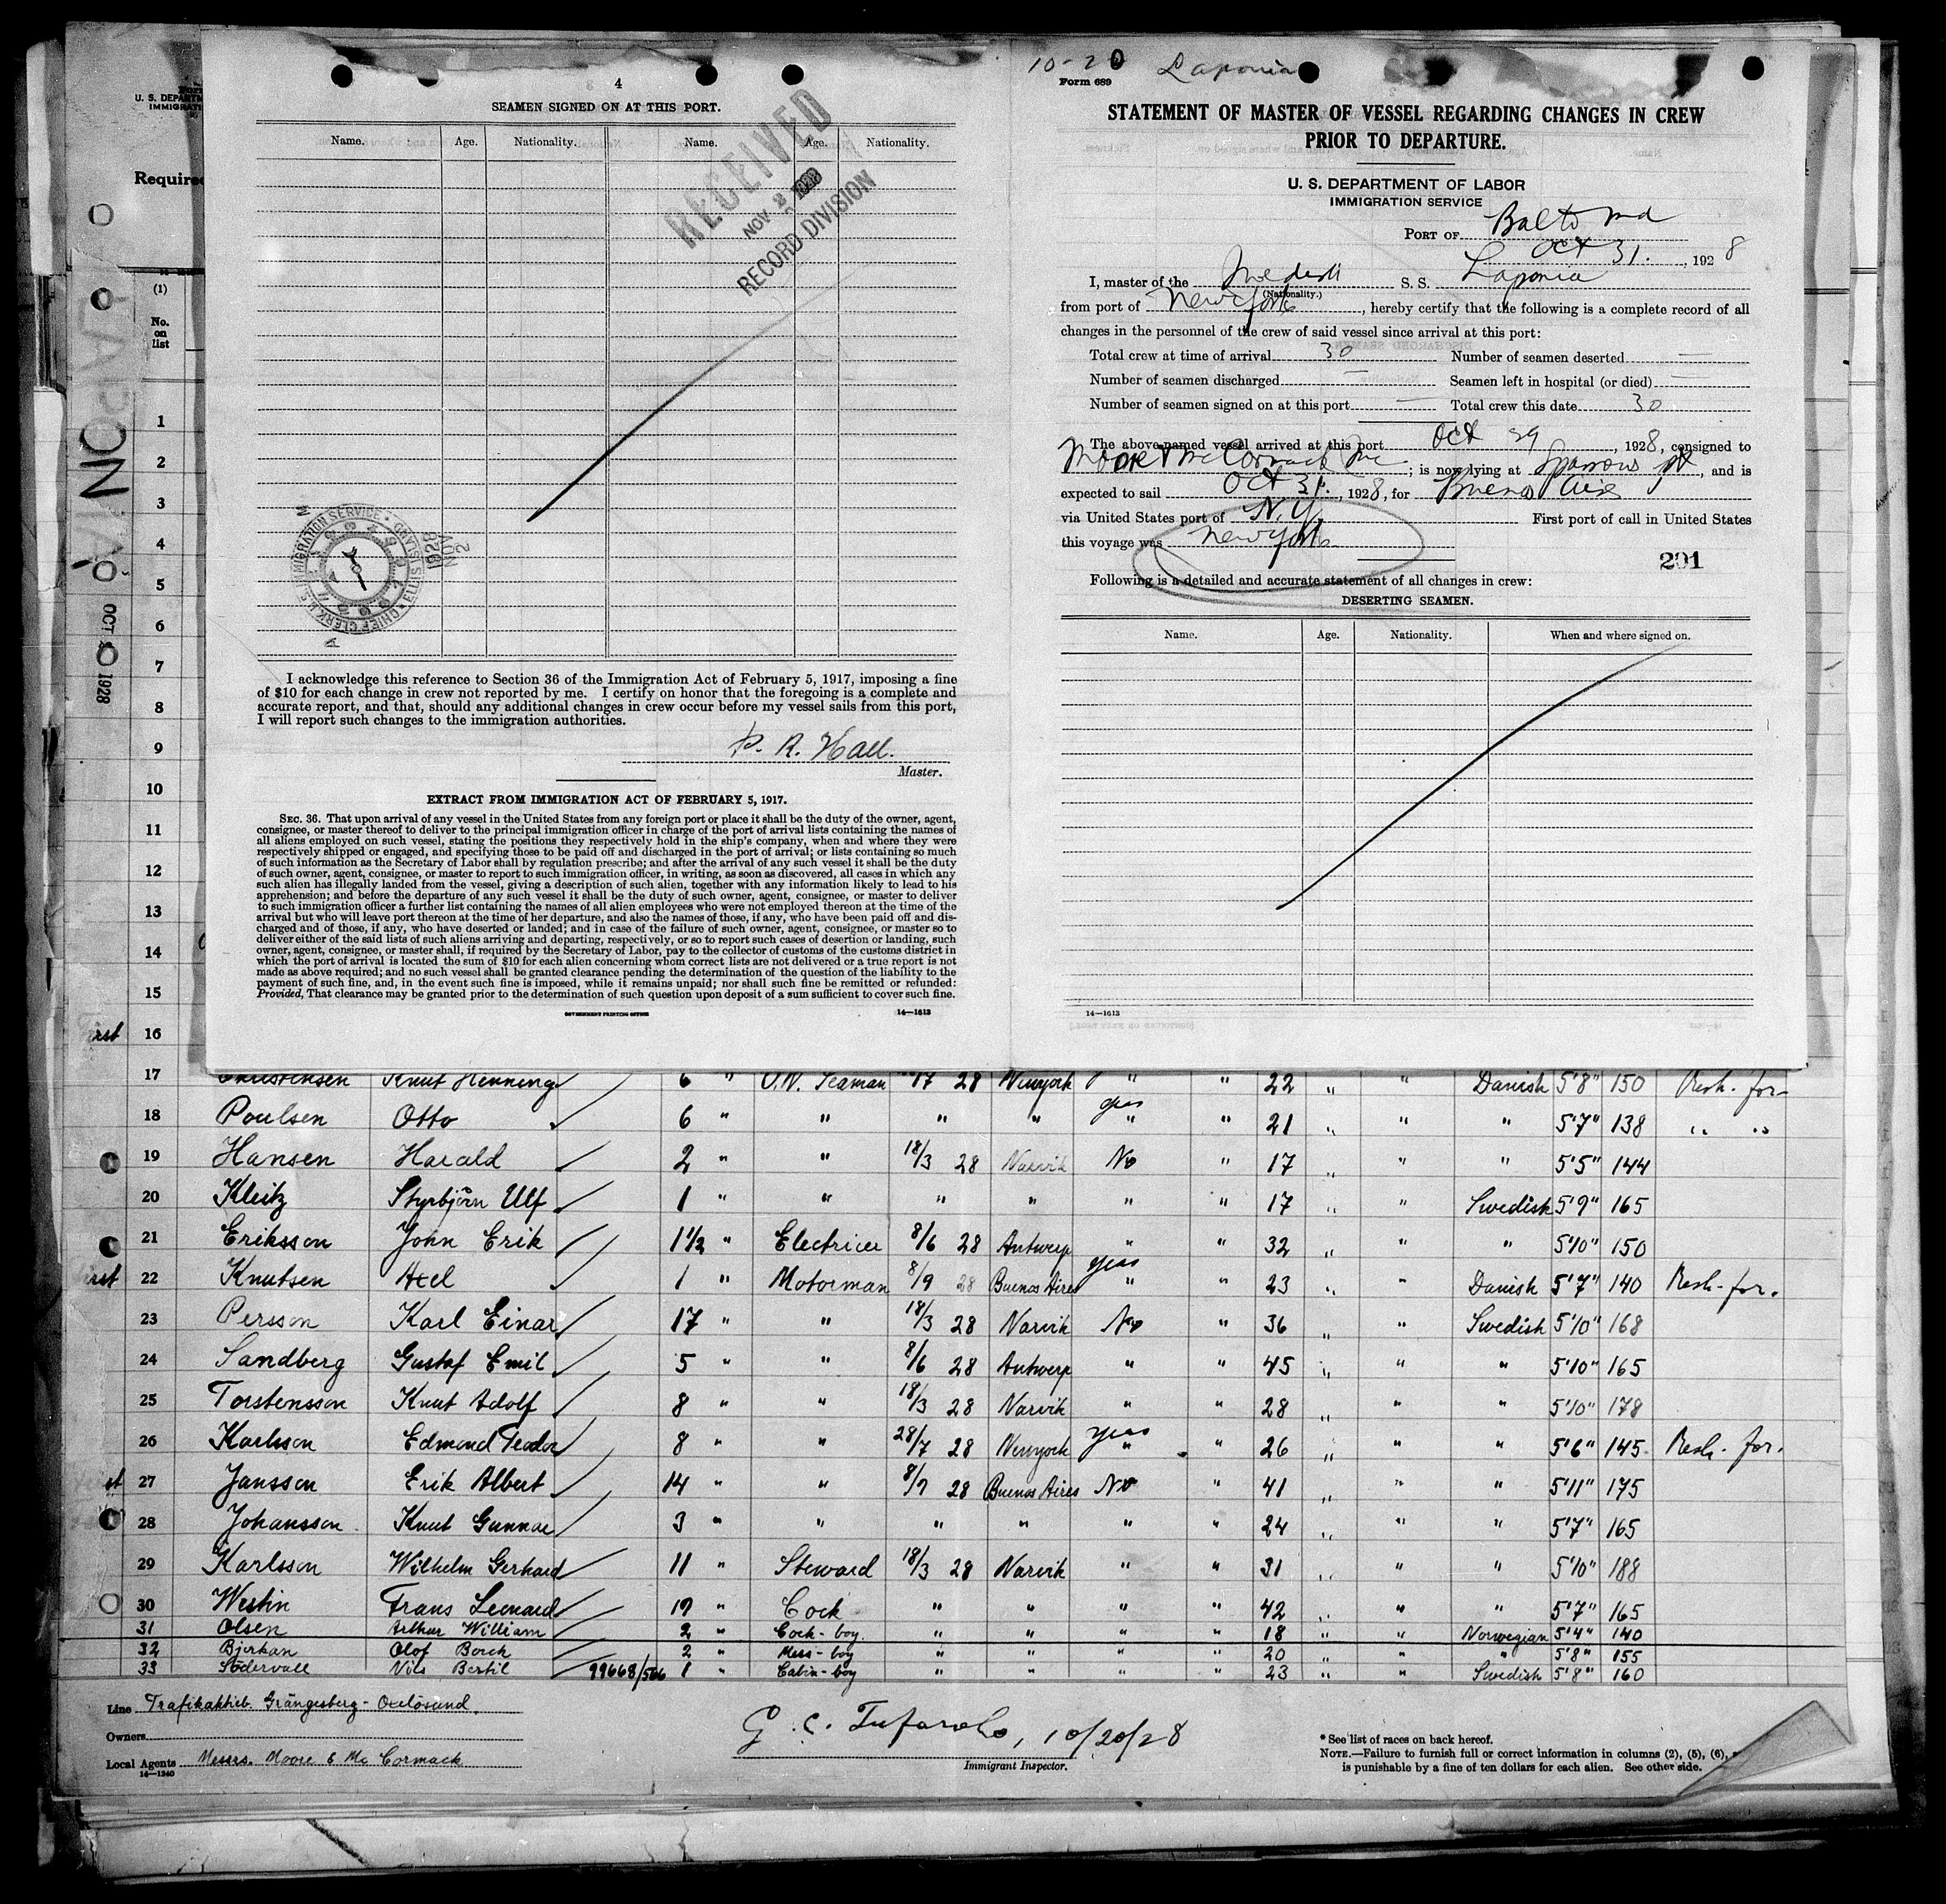 4
SEAMEN SIGNED ON AT THIS PORT.
Name. Age. Nationality. Name. Age. Nationality.
RECEIVED
NOV. 2 1928
RECORD DIVISION
U.S. IMMIGRATION SERVICE • ELLIS ISLAND • CHIEF CLERK
NOV 2 1928
I acknowledge this reference to Section 36 of the Immigration Act of February 5, 1917, imposing a fine
of $10 for each change in crew not reported by me. I certify on honor that the foregoing is a complete and
accurate report, and that, should any additional changes in crew occur before my vessel sails from this port,
I will report such changes to the immigration authorities.
P. R. Hall.
Master.
EXTRACT FROM IMMIGRATION ACT OF FEBRUARY 5, 1917.
SEC. 36. That upon arrival of any vessel in the United States from any foreign port or place it shall be the duty of the owner, agent,
consignee, or master thereof to deliver to the principal immigration officer in charge of the port of arrival lists containing the names of
all aliens employed on such vessel, stating the positions they respectively hold in the ship's company, when and where they were
respectively shipped or engaged, and specifying those to be paid off and discharged in the port of arrival; or lists containing so much
of such information as the Secretary of Labor shall by regulation prescribe; and after the arrival of any such vessel it shall be the duty
of such owner, agent, consignee, or master to report to such immigration officer, in writing, as soon as discovered, all cases in which any
such alien has illegally landed from the vessel, giving a description of such alien, together with any information likely to lead to his
apprehension; and before the departure of any such vessel it shall be the duty of such owner, agent, consignee, or master to deliver
to such immigration officer a further list containing the names of all alien employees who were not employed thereon at the time of the
arrival but who will leave port thereon at the time of her departure, and also the names of those, if any, who have been paid off and dis-
charged and of those, if any, who have deserted or landed; and in case of the failure of such owner, agent, consignee, or master so to
deliver either of the said lists of such aliens arriving and departing, respectively, or so to report such cases of desertion or landing, such
owner, agent, consignee, or master shall, if required by the Secretary of Labor, pay to the collector of customs of the customs district in
which the port of arrival is located the sum of $10 for each alien concerning whom correct lists are not delivered or a true report is not
made as above required; and no such vessel shall be granted clearance pending the determination of the question of the liability to the
payment of such fine, and, in the event such fine is imposed, while it remains unpaid; nor shall such fine be remitted or refunded:
Provided, That clearance may be granted prior to the determination of such question upon deposit of a sum sufficient to cover such fine.
GOVERNMENT PRINTING OFFICE 14—1613
10-20 Laponia
Form 689
STATEMENT OF MASTER OF VESSEL REGARDING CHANGES IN CREW
PRIOR TO DEPARTURE.
U. S. DEPARTMENT OF LABOR
IMMIGRATION SERVICE
PORT OF Balto Md
Oct 31. , 1928
I, master of the Swedish S. S. Laponia
(Nationality.)
from port of New York , hereby certify that the following is a complete record of all
changes in the personnel of the crew of said vessel since arrival at this port:
Total crew at time of arrival 30 Number of seamen deserted —
Number of seamen discharged — Seamen left in hospital (or died) —
Number of seamen signed on at this port — Total crew this date 30
The above-named vessel arrived at this port Oct 29 , 1928, consigned to
Moore & McCormack Inc ; is now lying at Sparrows pt , and is
expected to sail Oct 31. , 1928, for Buenos Aires
via United States port of N.Y. First port of call in United States
this voyage was New York
201
Following is a detailed and accurate statement of all changes in crew:
DESERTING SEAMEN.
Name. Age. Nationality. When and where signed on.
14—1613
U. S. DEPARTM
IMMIGRATI
Require
LAPONIA
OCT 20 1928
(1)
No.
on
list
1
2
3
4
5
6
7
8
9
10
11
12
13
14
15
16
17 Christensen Knut Henning 6 " O.N. Seaman 17 28 Newyork " " 22 " " Danish 5'8" 150 Resh. for-
18 Poulsen Otto 6 " " " " yes " " 21 " " " 5'7" 138 " "
19 Hansen Harald 2 " " 18/3 28 Narvik No " 17 " " " 5'5" 144
20 Kleitz Styrbjörn Ulf 1 " " " " " " 17 " " Swedish 5'9" 165
21 Eriksson John Erik 1 1/2 " Electricer 8/6 28 Antwerp " " 32 " " " 5'10" 150
22 Knutsen Axel 1 " Motorman 8/9 28 Buenos Aires yes " " 23 " " Danish 5'7" 140 Resh. for.
23 Persson Karl Einar 17 " " 18/3 28 Narvik No " 36 " " Swedish 5'10" 168
24 Sandberg Gustaf Emil 5 " " 8/6 28 Antwerp " " 45 " " " 5'10" 165
25 Torstensson Knut Adolf 8 " " 18/3 28 Narvik " " 28 " " " 5'10" 178
26 Karlsson Edmond Teodor 8 " " 28/7 28 Newyork yes " " 26 " " " 5'6" 145 Resh. for.
27 Jansson Erik Albert 14 " " 8/9 28 Buenos Aires No " 41 " " " 5'11" 175
28 Johansson Knut Gunnar 3 " " " " " " 24 " " " 5'7" 165
29 Karlsson Wilhelm Gerhard 11 " Steward 18/3 28 Narvik " " 31 " " " 5'10" 188
30 Westin Frans Leonard 19 " Cock " " " " 42 " " " 5'7" 165
31 Olsen Arthur William 2 " Cock-boy " " " " 18 " " Norwegian 5'4" 140
32 Bjerkan Olof Borck 2 " Mess-boy " " " " 20 " " " 5'8" 155
33 Södervall Nils Bertil 99668/566 1 " Cabin-boy " " " " 23 " " Swedish 5'8" 160
Line Trafikaktieb. Grängesberg-Oxelösund
Owners
Local Agents Messrs. Moore & Mc Cormack
14—1240
G. C. Tufarolo, 10/20/28
Immigrant Inspector.
* See list of races on back hereof.
NOTE.—Failure to furnish full or correct information in columns (2), (5), (6),
is punishable by a fine of ten dollars for each alien. See other side.